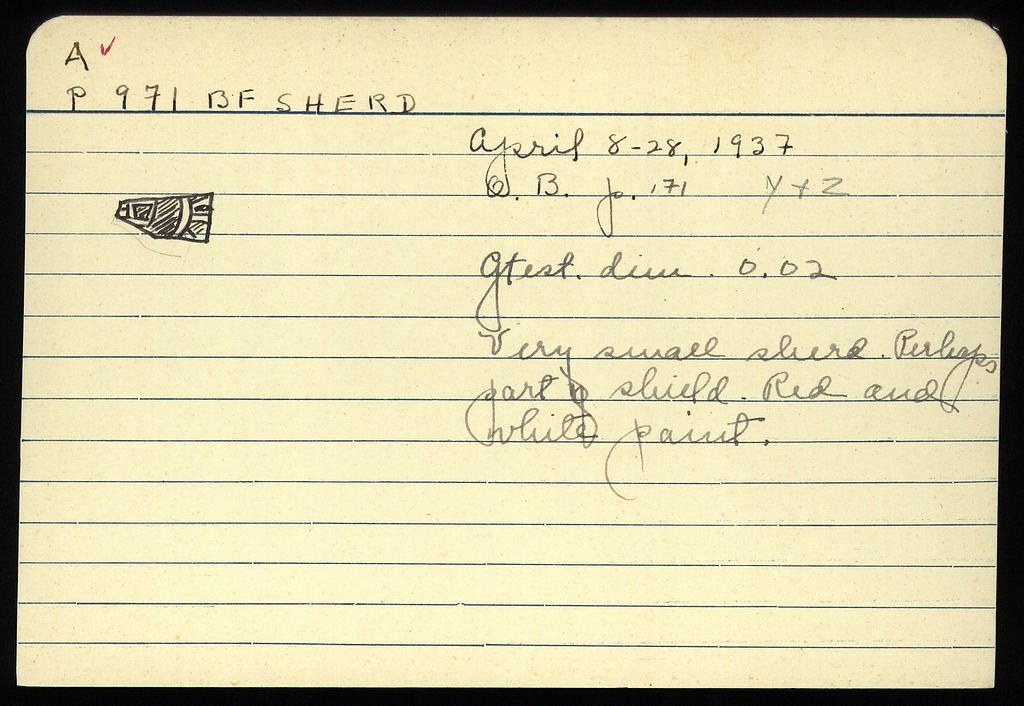 A ✓
P 971 BF SHERD
April 8-28, 1937
O. B. p. 171 Y + Z
Gtest. dim. 0.02
Very small sherd. Perhaps
part of shield. Red and
white paint.